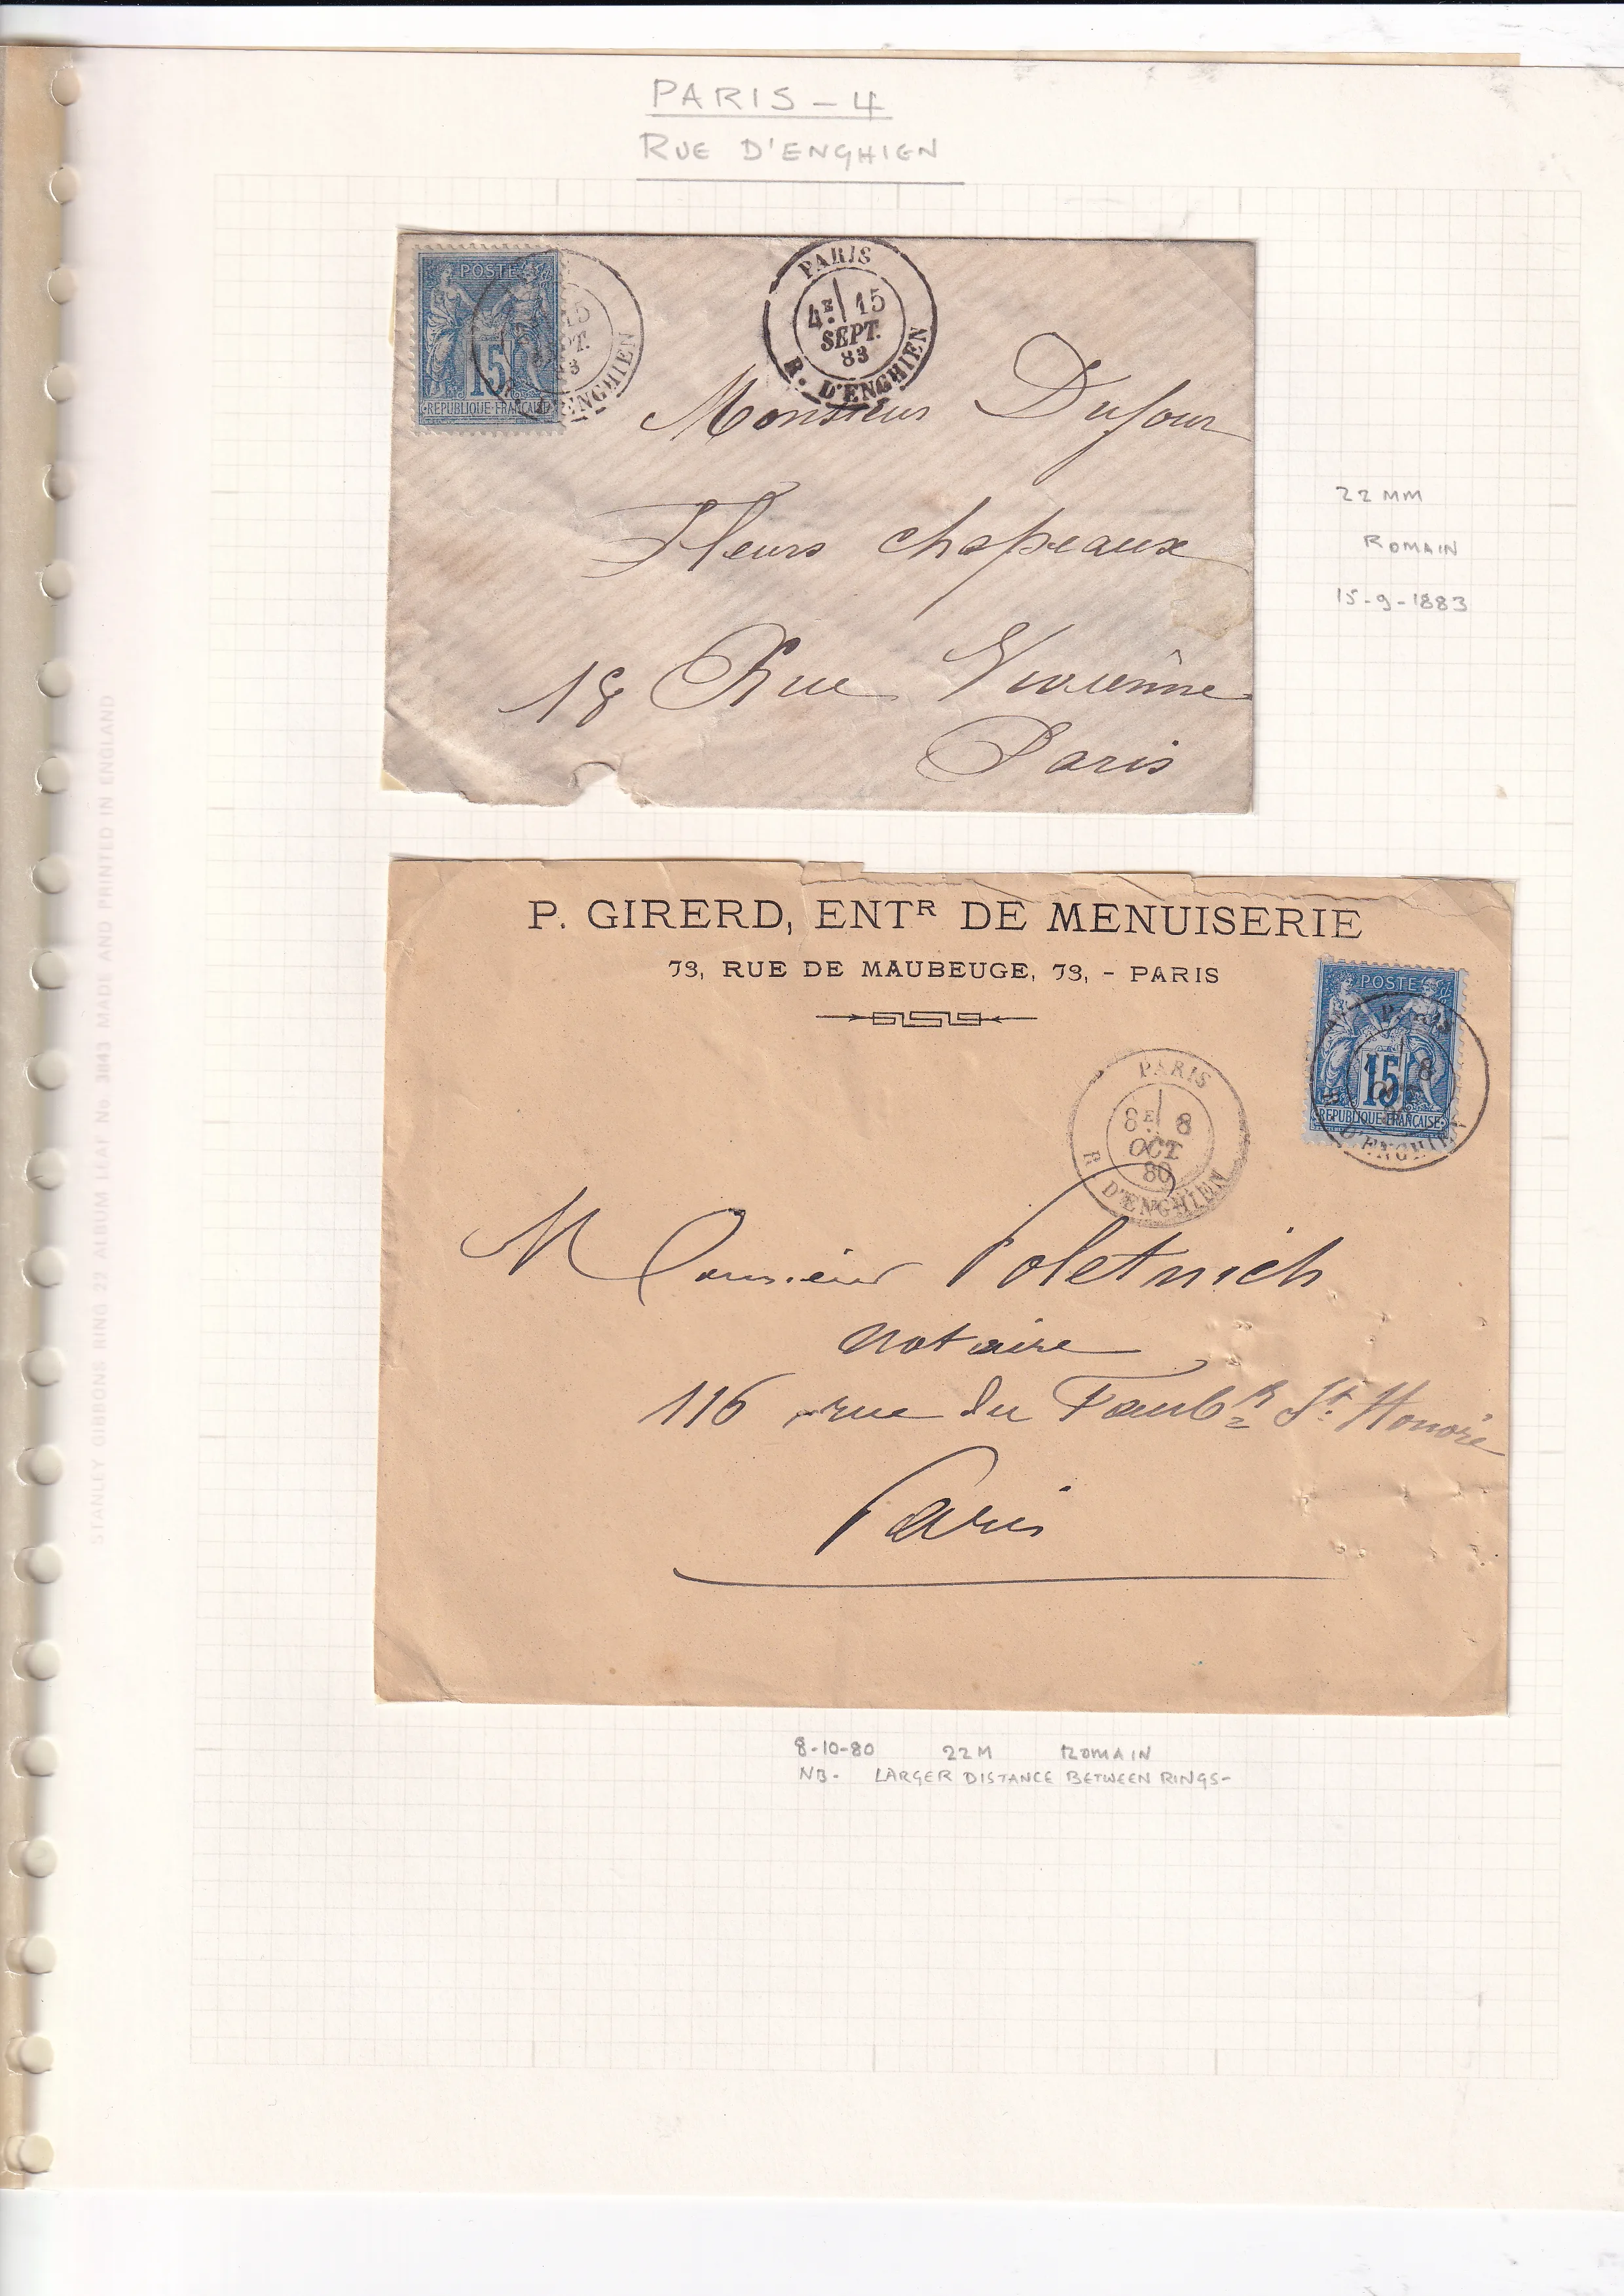 PARIS - 4
RUE D'ENGHIEN
POSTE
15
REPUBLIQUE FRANCAISE
15
PT.
3
ENGHIEN
PARIS
4E 15
SEPT.
83
R. D'ENGHIEN
Monsieur Dufour
Fleurs chapeaux
18 Rue Viviênne
Paris
22 MM
ROMAIN
15-9-1883
STANLEY GIBBONS RING 22 ALBUM LEAF No. 3843 MADE AND PRINTED IN ENGLAND
P. GIRERD, ENTR DE MENUISERIE
73, RUE DE MAUBEUGE, 73, - PARIS
POSTE
15
REPUBLIQUE FRANCAISE
PARIS
8
D'ENGHIEN
PARIS
8E 8
OCT
80
R D'ENGHIEN
Monsieur
notaire
116 rue du Faubg St. Honoré
Paris
8-10-80 22M ROMAIN
NB- LARGER DISTANCE BETWEEN RINGS-